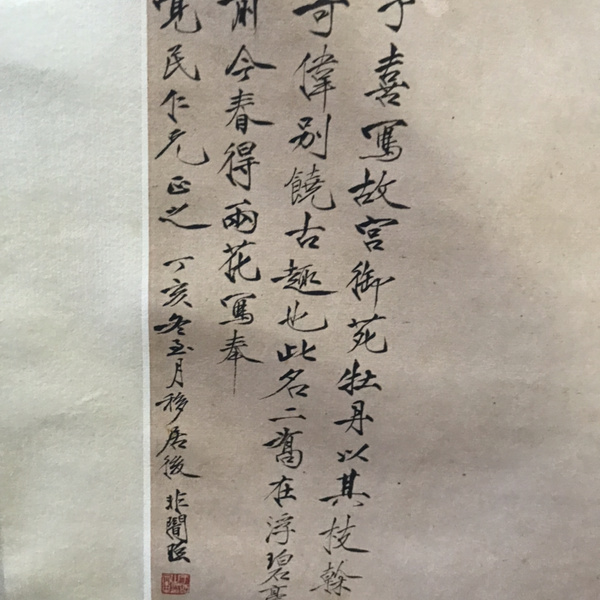 予喜寫故宮御苑牡丹以其枝榦
可偉別饒古趣也此名二喬在浮碧亭
前今春得兩花寫奉
覺民仁兄正之 丁亥冬至月移居後 非闇